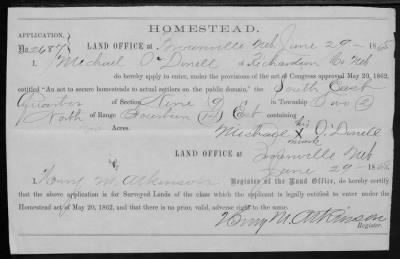 HOMESTEAD.
APPLICATION,
No 2687 LAND OFFICE at Brownville Neb June 29 — 1865
I, Michael O'Dinell of Richardson Co Neb
do hereby apply to enter, under the provisions of the act of Congress approved May 20, 1862,
entitled "An act to secure homesteads to actual settlers on the public domain," the South East
Quarter of Section Nine 9 in Township Two (2)
North of Range Fourteen (14) East containing
Acres. his
Michael X O'Dinell
mark
LAND OFFICE at
Brownville Neb
June 29 — 1865
I, Henry M. Atkinson Register of the Land Office, do hereby certify
that the above application is for Surveyed Lands of the class which the applicant is legally entitled to enter under the
Homestead act of May 20, 1862, and that there is no prior, valid, adverse right to the same.
Henry M. Atkinson
Register.